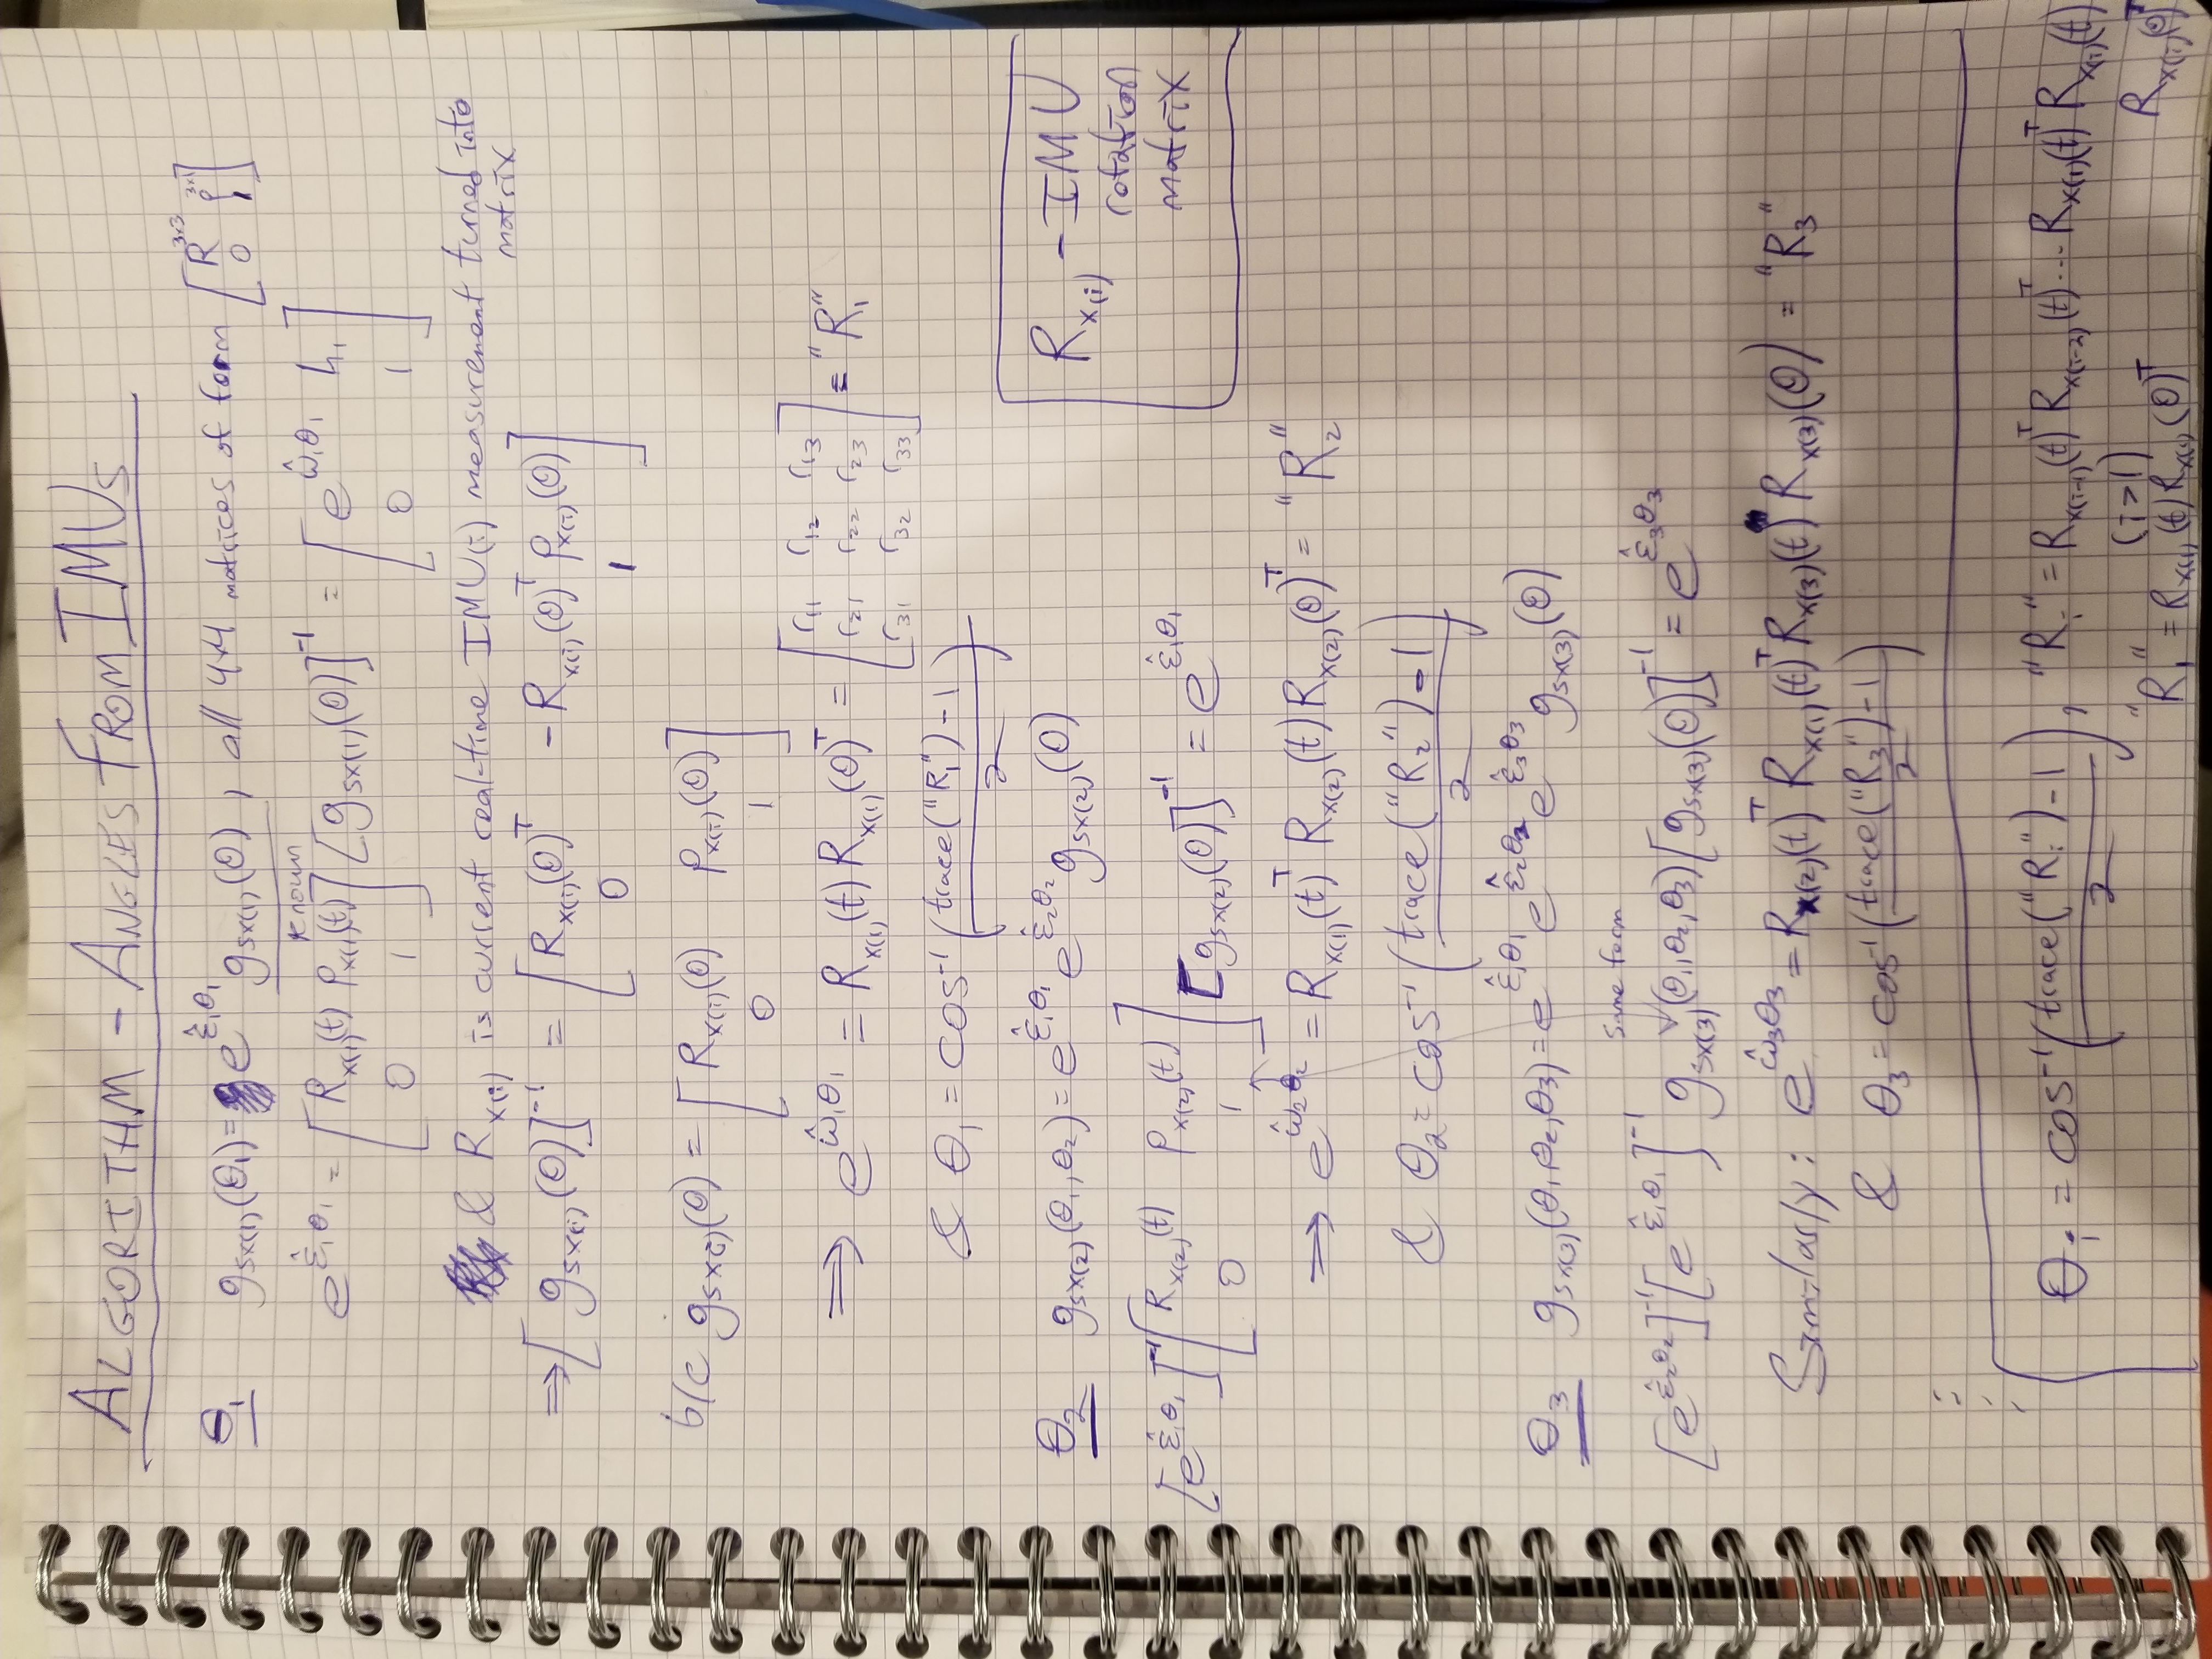 ALGORITHM - ANGLES FROM IMUs
θ₁ g_sx(1)(θ₁) = e^{ξ̂₁θ₁} g_sx(1)(0), all 4x4 matrices of form [R^{3x3} p^{3x1}; 0 1]
known
e^{ξ̂₁θ₁} = [R_x(1)(t) p_x(1)(t); 0 1] [g_sx(1)(0)]^{-1} = [e^{ω̂₁θ₁} h₁; 0 1]
& R_x(i) is current real-time IMU(i) measurement turned into
matrix
⇒ [g_sx(i)(0)]^{-1} = [R_x(i)(0)^T -R_x(i)(0)^T p_x(i)(0); 0 1]
b/c g_sx(i)(0) = [R_x(i)(0) p_x(i)(0); 0 1]
⇒ e^{ω̂₁θ₁} = R_x(1)(t) R_x(1)(0)^T = [r₁₁ r₁₂ r₁₃; r₂₁ r₂₂ r₂₃; r₃₁ r₃₂ r₃₃] = "R₁"
& θ₁ = cos^{-1}((trace("R₁")-1)/2)
θ₂ g_sx(2)(θ₁,θ₂) = e^{ξ̂₁θ₁} e^{ξ̂₂θ₂} g_sx(2)(0)
R_x(i) - IMU
rotation
matrix
[e^{ξ̂₁θ₁}]^{-1} [R_x(2)(t) p_x(2)(t); 0 1] [g_sx(2)(0)]^{-1} = e^{ξ̂₁θ₁}
⇒ e^{ω̂₂θ₂} = R_x(1)(t)^T R_x(2)(t) R_x(2)(0)^T = "R₂"
& θ₂ = cos^{-1}((trace("R₂")-1)/2)
θ₃ g_sx(3)(θ₁,θ₂,θ₃) = e^{ξ̂₁θ₁} e^{ξ̂₂θ₂} e^{ξ̂₃θ₃} g_sx(3)(0)
same form
[e^{ξ̂₂θ₂}]^{-1} [e^{ξ̂₁θ₁}]^{-1} g_sx(3)(θ₁,θ₂,θ₃) [g_sx(3)(0)]^{-1} = e^{ξ̂₃θ₃}
Similarly: e^{ω̂₃θ₃} = R_x(2)(t)^T R_x(1)(t)^T R_x(3)(t) R_x(3)(0) = "R₃"
& θ₃ = cos^{-1}((trace("R₃")-1)/2)
θᵢ = cos^{-1}((trace("Rᵢ")-1)/2), "Rᵢ" = R_x(i-1)(t)^T R_x(i-2)(t)^T ... R_x(1)(t)^T R_x(i)(t)
(i>1) R_x(i)(0)^T
"R₁" = R_x(1)(t) R_x(1)(0)^T